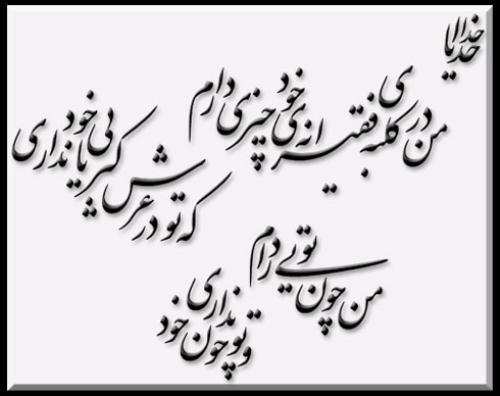 خدایا
من در کلبه ی فقیرانه ی خود چیزی دارم
که تو در عرش کبریایی خود نداری
من چون تویی دارم
و تو چون خود نداری